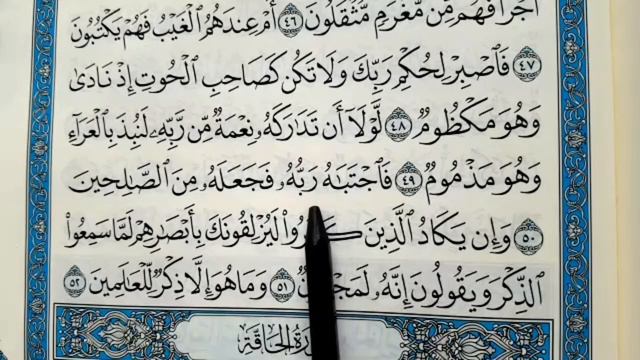 أَجْرًا فَهُم مِّن مَّغْرَمٍ مُّثْقَلُونَ ٤٦ أَمْ عِندَهُمُ الْغَيْبُ فَهُمْ يَكْتُبُونَ
٤٧ فَاصْبِرْ لِحُكْمِ رَبِّكَ وَلَا تَكُن كَصَاحِبِ الْحُوتِ إِذْ نَادَىٰ
وَهُوَ مَكْظُومٌ ٤٨ لَّوْلَا أَن تَدَارَكَهُ نِعْمَةٌ مِّن رَّبِّهِ لَنُبِذَ بِالْعَرَاءِ
وَهُوَ مَذْمُومٌ ٤٩ فَاجْتَبَاهُ رَبُّهُ فَجَعَلَهُ مِنَ الصَّالِحِينَ
٥٠ وَإِن يَكَادُ الَّذِينَ لَيُزْلِقُونَكَ بِأَبْصَارِهِمْ لَمَّا سَمِعُوا
الذِّكْرَ وَيَقُولُونَ إِنَّهُ ٥١ وَمَا هُوَ إِلَّا ذِكْرٌ لِّلْعَالَمِينَ ٥٢
الْحَاقَّةِ